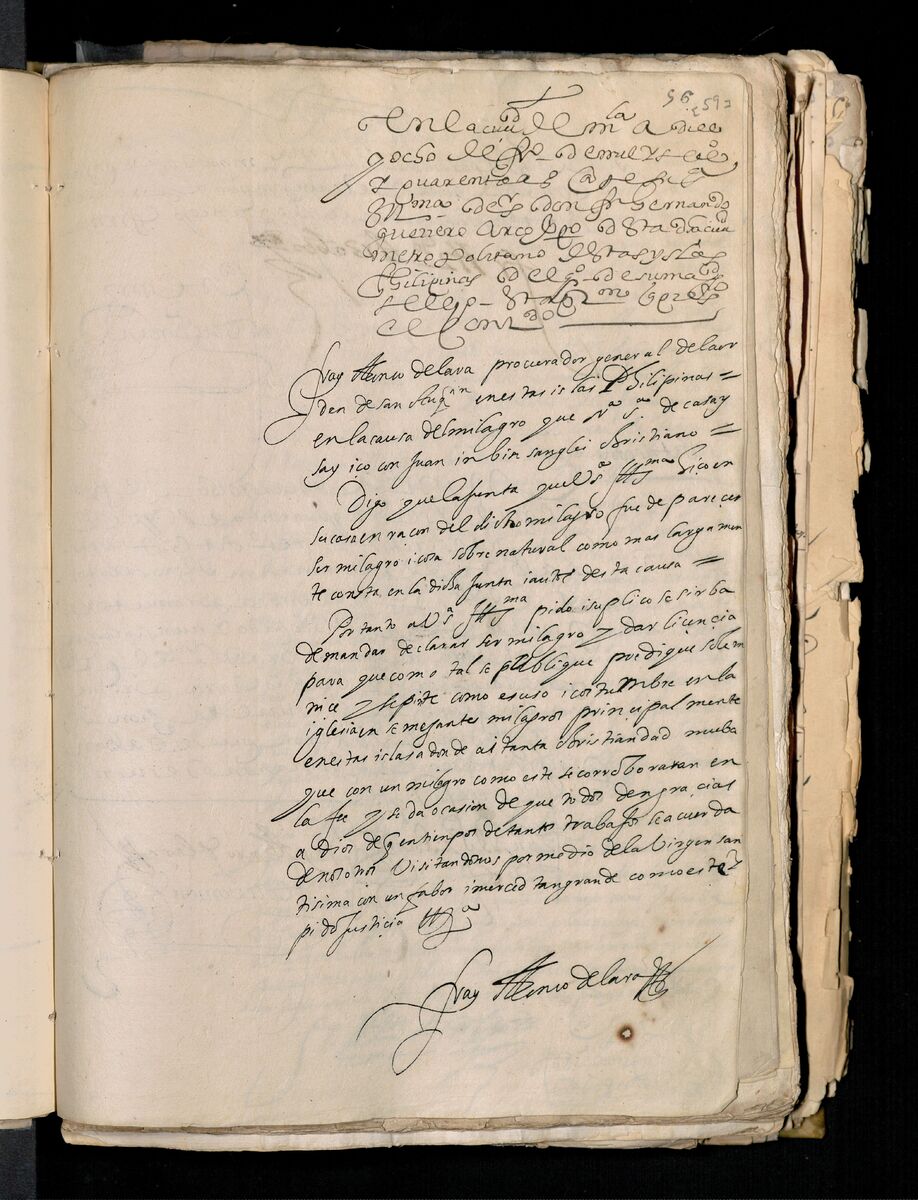 56 59
En la ciud de mla a diez
y ocho de de mill y s
y quarenta as
Illma del s don fr hernando
guerrero Arcobpo desta ciud
metropolitano destas yslas
Philipinas del qo de su magd
el contdo
fray Alonso de lara procurador general dela or
den de san Augin en estas islas Philipinas =
en la causa del milagro que nra sra de casay
say iço con Juan inbin sanglei christiano =
Digo que la junta que Vsa Illma hiço en
su casa en raçon del dicho milagro fue de parecer
ser milagro i cosa sobre natural como mas largamen
te consta en la dicha junta i autos desta causa =
Por tanto a Vsa Illma pido i suplico se sirba
de mandar declarar ser milagro y dar licencia
para que como tal se publique predique solem
nice y se pinte como es uso i costumbre en la
iglesia en semejantes milagros principalmente
en estas islas adonde ai tanta christiandad nueba
que con un milagro como este se corroboraran en
la fee y se da ocasion de que todos den gracias
a Dios de q en tiempos de tantos trabajos se acuerda
de nosotros Visitandonos por medio dela Virgen san
tisima con un fabor i merced tan grande como este
pido justicia
fray Alonso de lara